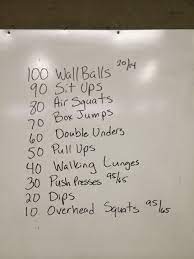 100 Wall Balls 20/14
90 Sit Ups
80 Air Squats
70 Box Jumps
60 Double Unders
50 Pull Ups
40 Walking Lunges
30 Push Presses 95/65
20 Dips
10 Overhead Squats 95/65